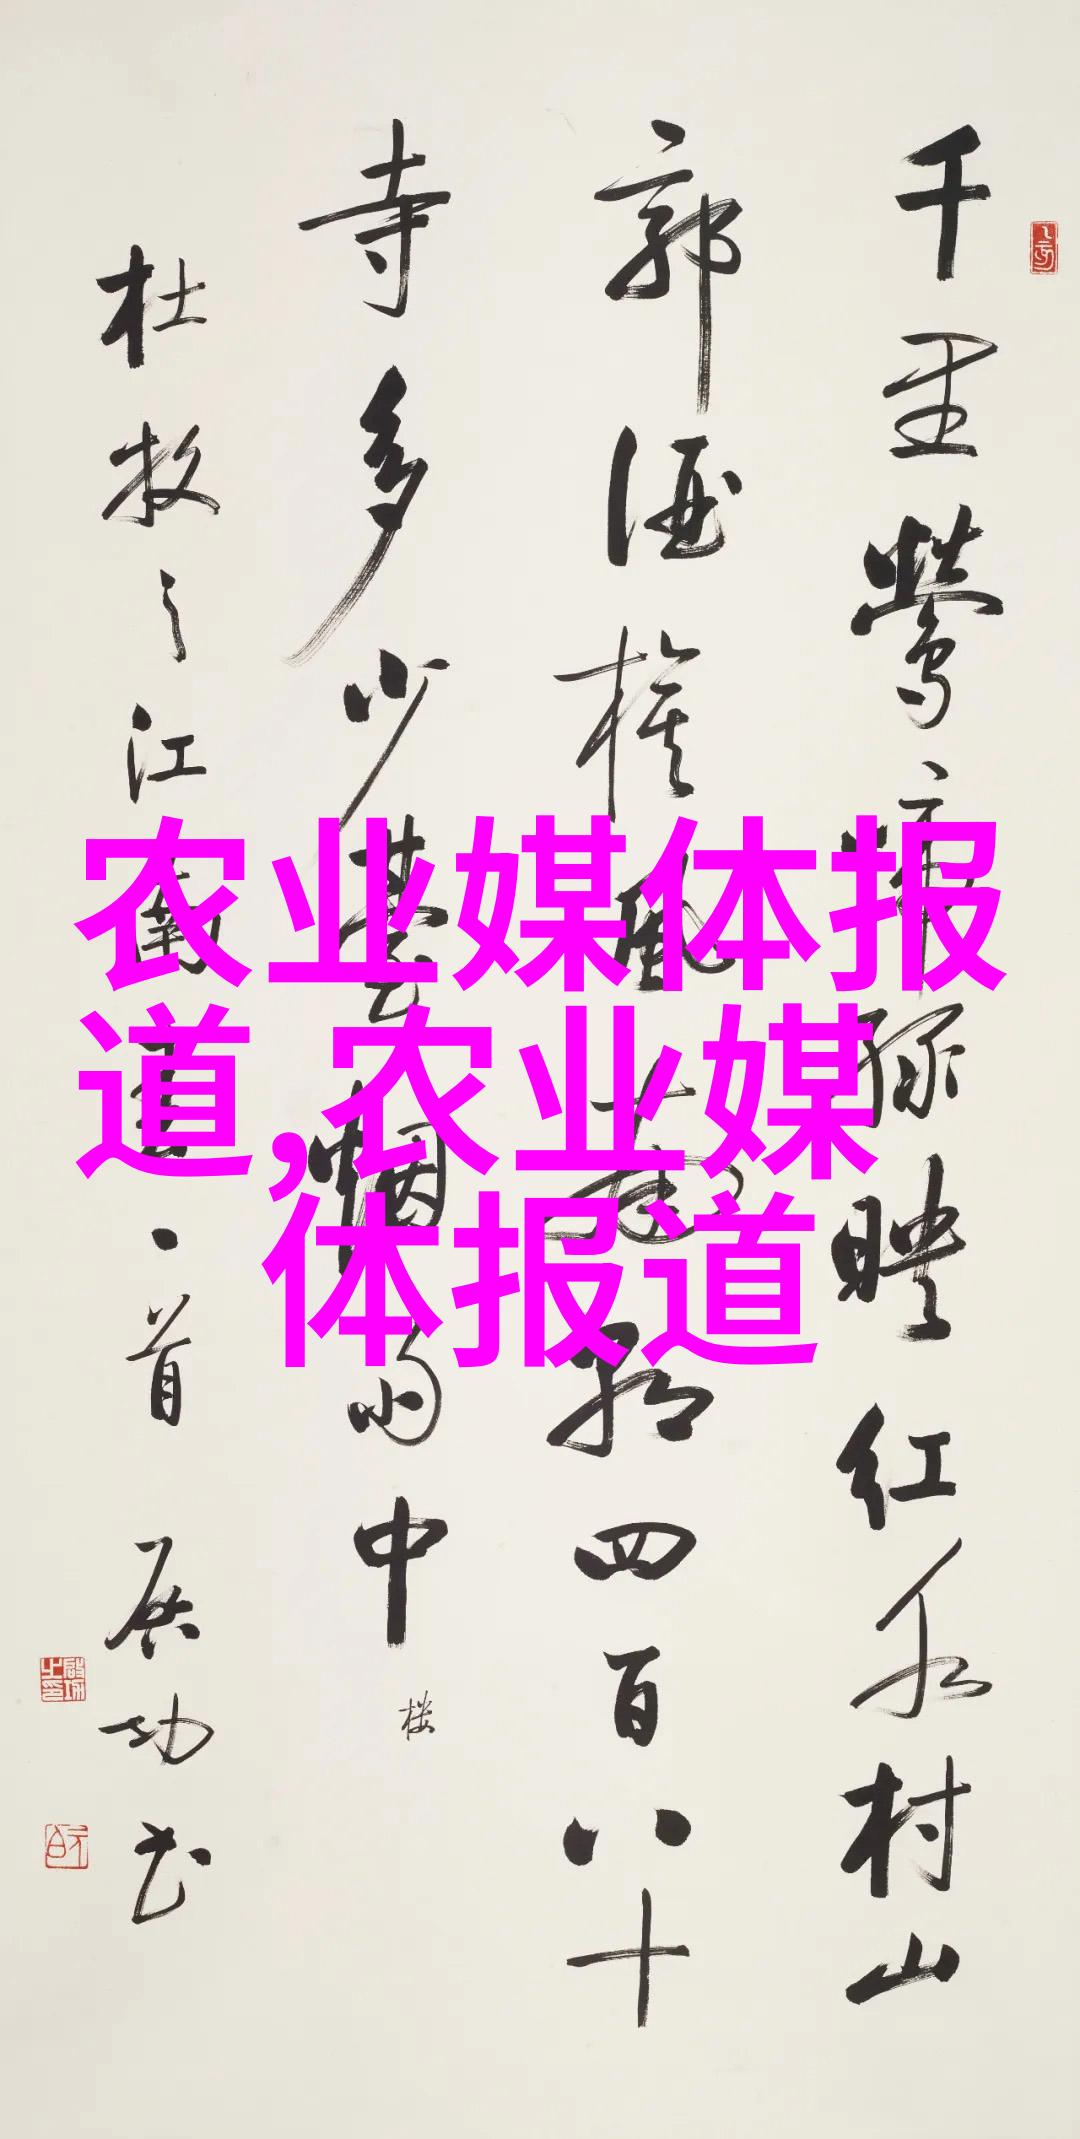 千里鶯啼绿映红水村山
郭酒旗風南朝四百八十
寺多少臺烟雨中
楼
杜牧之江南春一首 启功书
农业媒体报
道,农业媒
体报道